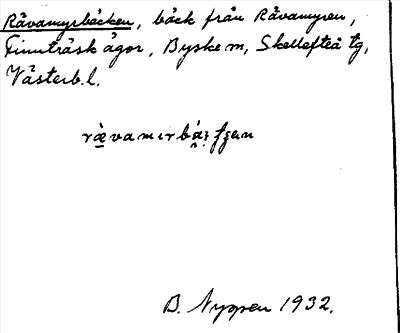 Råvamyrbäcken, bäck från Råvamyren,
Finnträsk ägor, Byske m, Skellefteå tg,
Västerb. l.
B. Nyppen 1932.